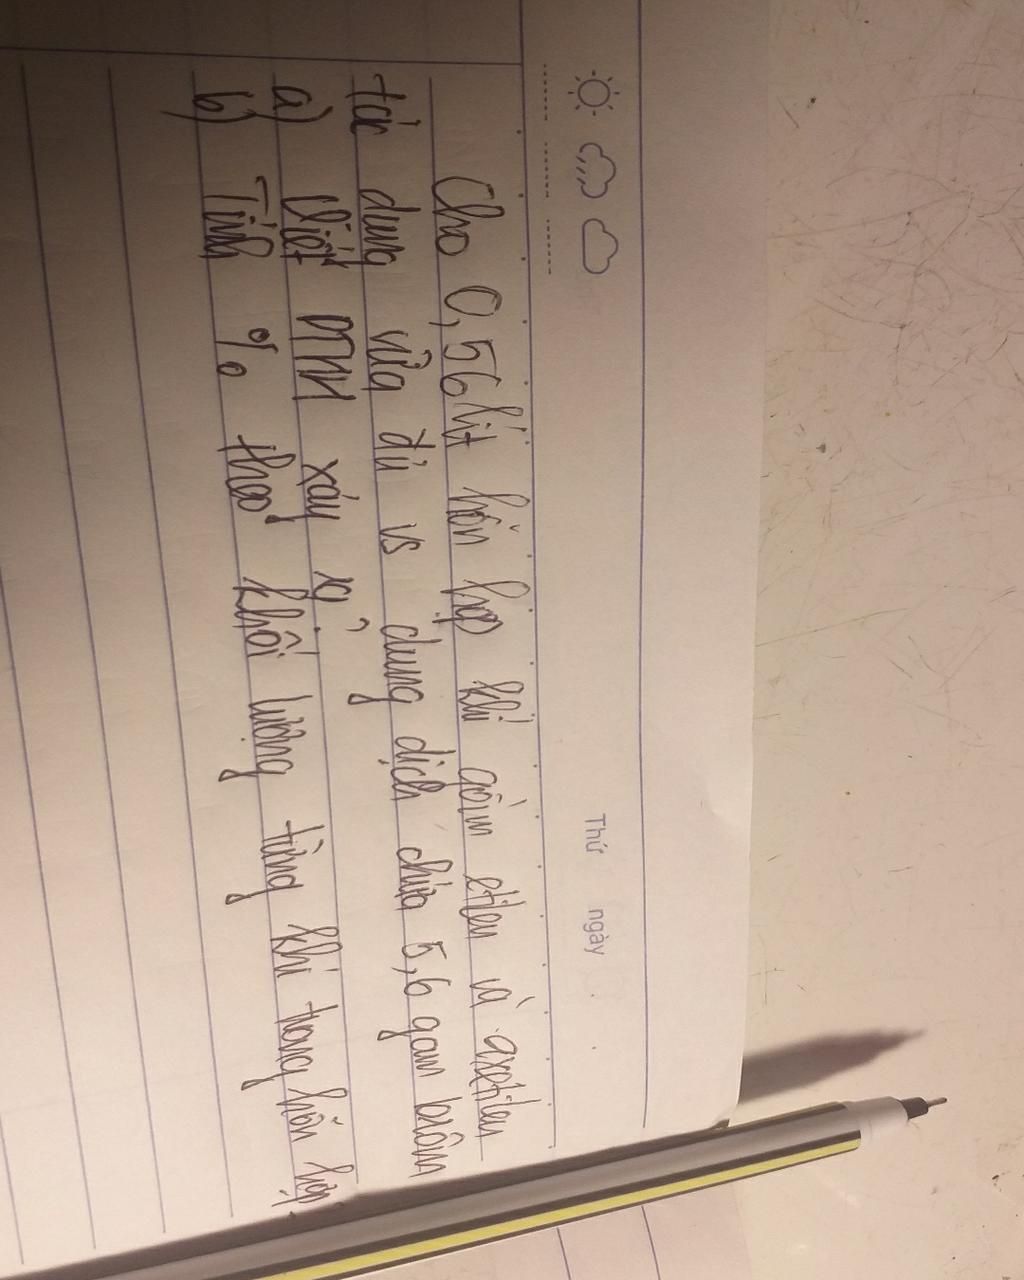 Thứ ngày
Cho 0,56 lít hỗn hợp khí gồm etilen và axetilen
tác dụng vừa đủ vs dung dịch chứa 5,6 gam brôm
a) Viết PTHH xảy ra
b) Tính % theo khối lượng từng khí trong hỗn hợp